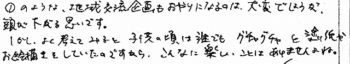 ①のような、地域交流企画もおやりになるのは、大変でしょうが、
頭が下がる思いです。
しかし、よく考えてみると子供の頃は誰でもグチャグチャと塗り絵や
お絵描きをしていたのですから、こんなに楽しいことはありませんよね。